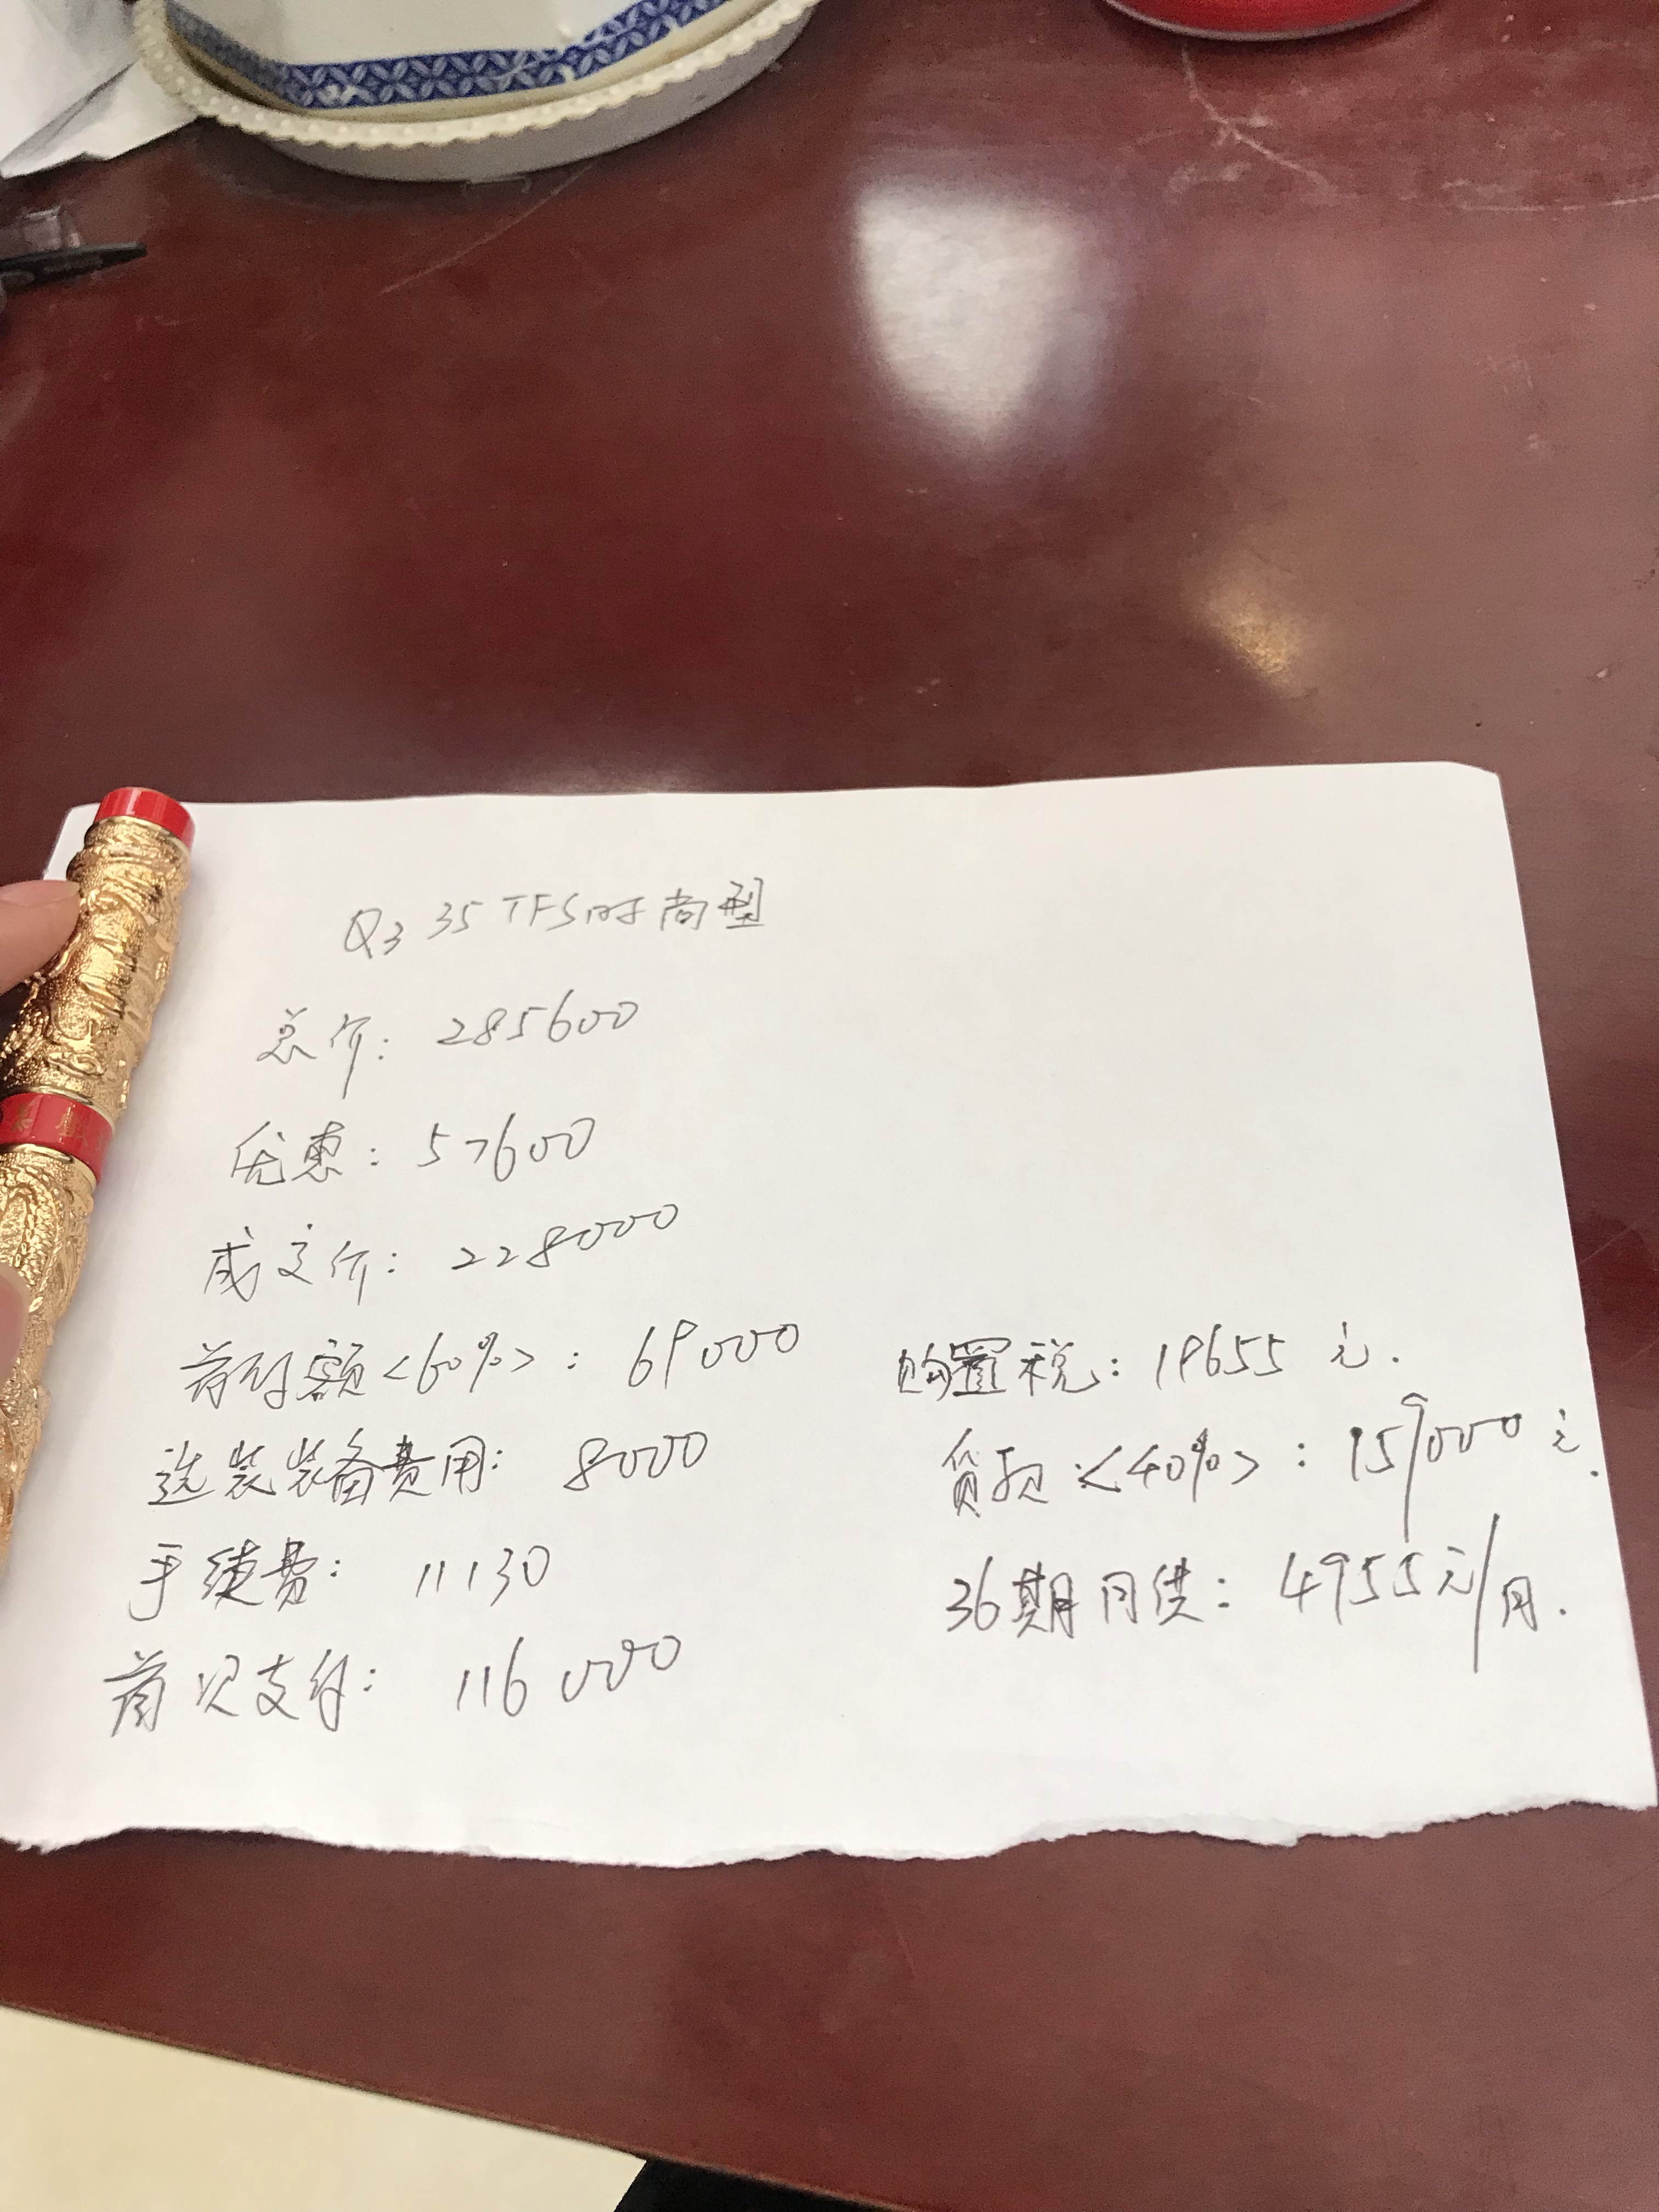 Q3 35 TFS时尚型
总价: 285600
优惠: 57600
成交价: 228000
首付额<60%>: 69000
选装装备费用: 8000
手续费: 11130
首次支付: 116000
购置税: 19655元.
贷款<40%>: 159000元.
36期月供: 4955元/月.